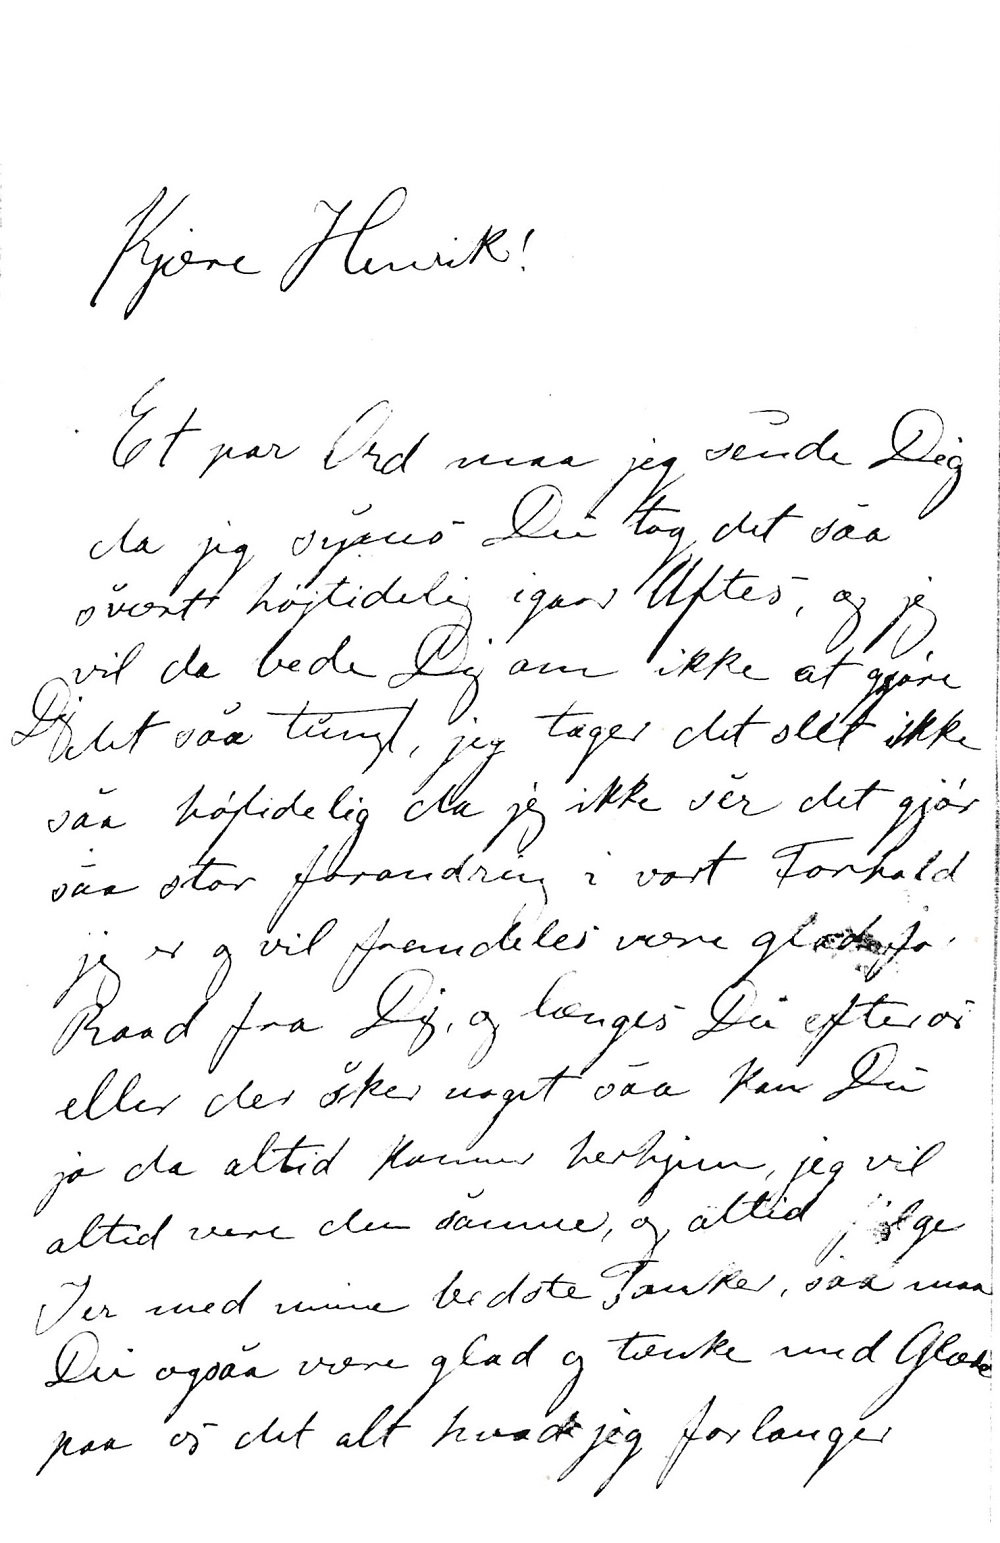 Kjære Henrik!
Et par Ord maa jeg sende Dig
da jeg synes Du tog det saa
svært højtidelig igaar Aftes, og jeg
vil da bede Dig om ikke at gjøre
Dig det saa tungt, jeg tager det slet ikke
saa højtidelig da jeg ikke ser det gjør
saa stor forandring i vort Forhold
jeg er og vil fremdeles være glad for
Raad fra Dig, og længes Du efter os
eller der sker noget saa kan Du
jo da altid komme herhjem, jeg vil
altid være den samme, og altid følge
Jer med mine bedste Tanker, saa maa
Du ogsaa være glad og tænke med Glæde
paa os det alt hvad jeg forlanger